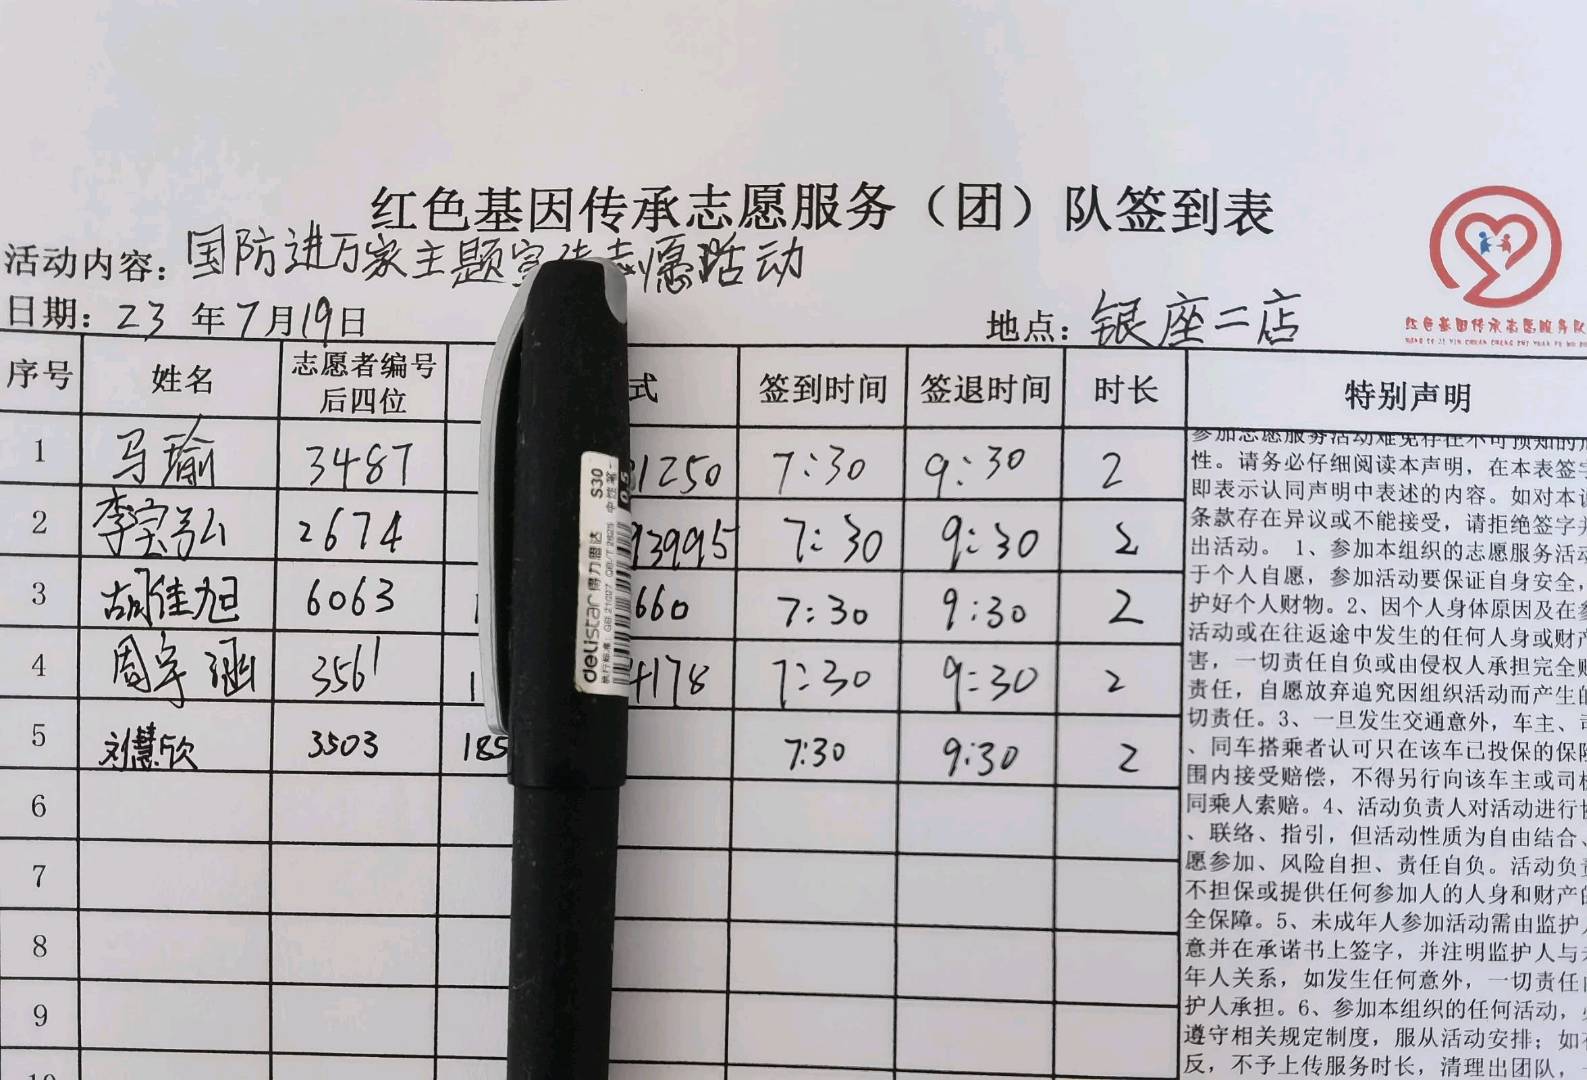 红色基因传承志愿服务（团）队签到表
活动内容：国防进万家主题宣传志愿活动
日期：23年7月19日
地点：银座二店
红色基因传承志愿服务队
序号 姓名 志愿者编号后四位 式 签到时间 签退时间 时长 特别声明
1 马瑜 3487 81250 7:30 9:30 2
2 李宗弘 2674 93995 7:30 9:30 2
3 胡佳旭 6063 660 7:30 9:30 2
4 周宇涵 3561 1 4178 7:30 9:30 2
5 刘慧欣 3503 185 7:30 9:30 2
6
7
8
9
10
delistar 得力思达 S30 中性笔
0.5
执行标准：QB/T 2625
参加志愿服务活动难免存在不可预知的
性。请务必仔细阅读本声明，在本表签字
即表示认同声明中表述的内容。如对本
条款存在异议或不能接受，请拒绝签字并
出活动。 1、参加本组织的志愿服务活动
于个人自愿，参加活动要保证自身安全，
护好个人财物。2、因个人身体原因及在参
活动或在往返途中发生的任何人身或财产
害，一切责任自负或由侵权人承担完全
责任，自愿放弃追究因组织活动而产生的
切责任。3、一旦发生交通意外，车主、司
、同车搭乘者认可只在该车已投保的保险
围内接受赔偿，不得另行向该车主或司机
同乘人索赔。4、活动负责人对活动进行
、联络、指引，但活动性质为自由结合、
愿参加、风险自担、责任自负。活动负责
不担保或提供任何参加人的人身和财产的
全保障。5、未成年人参加活动需由监护人
意并在承诺书上签字，并注明监护人与未
年人关系，如发生任何意外，一切责任由
护人承担。6、参加本组织的任何活动，
遵守相关规定制度，服从活动安排；如有
反，不予上传服务时长，清理出团队，